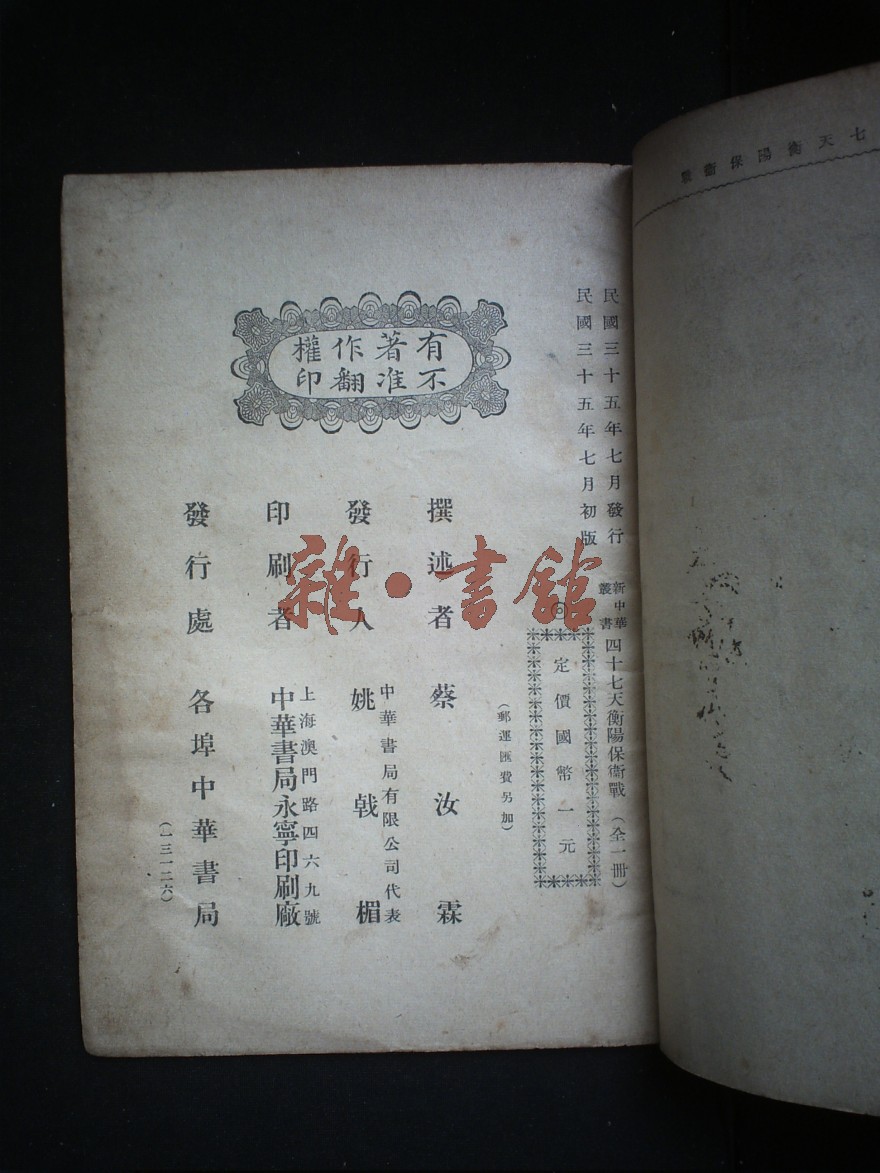 七天衡陽保衛戰
民國三十五年七月發行
民國三十五年七月初版
新中華叢書 四十七天衡陽保衛戰（全一冊）
◎定價國幣一元
（郵運匯費另加）
有著作權
不准翻印
撰述者 蔡汝霖
中華書局有限公司代表
發行人 姚戟楣
上海澳門路四六九號
印刷者 中華書局永寧印刷廠
發行處 各埠中華書局
（一三一二六）
雜·書館